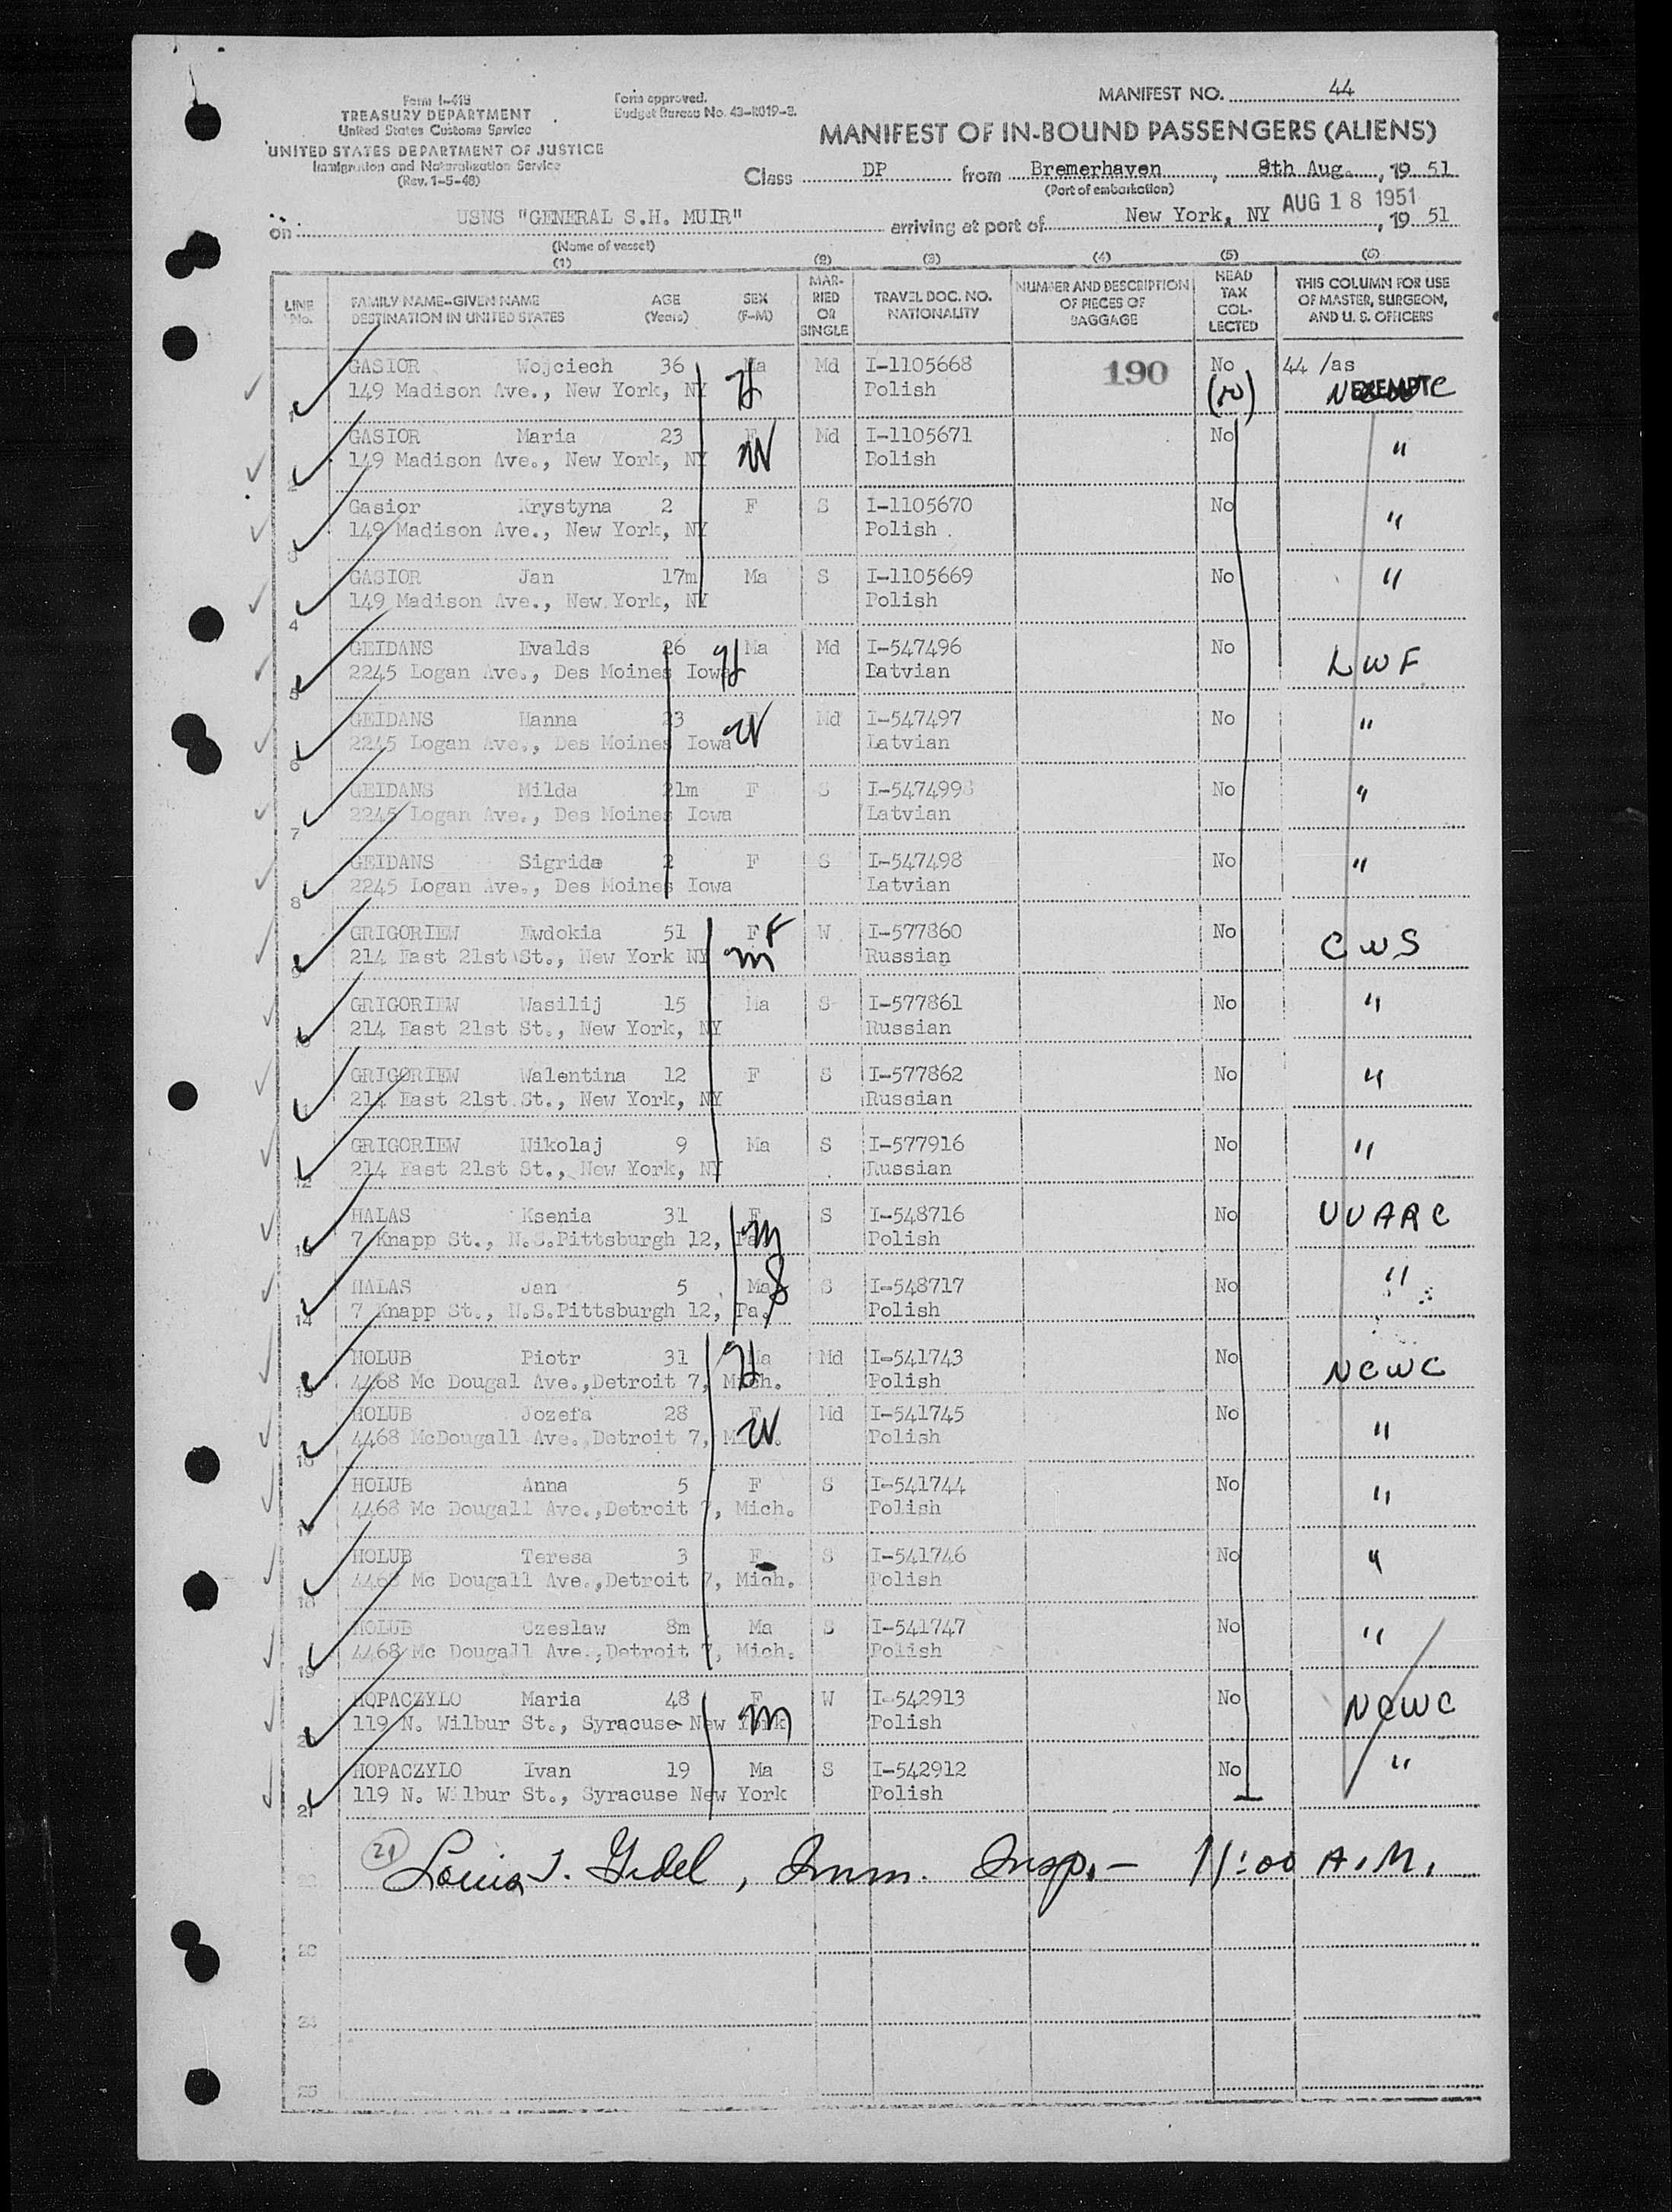 Form I-418
TREASURY DEPARTMENT
United States Customs Service
UNITED STATES DEPARTMENT OF JUSTICE
Immigration and Naturalization Service
(Rev. 1-5-48)
Form approved.
Budget Bureau No. 43-R019-2.
MANIFEST NO. 44
MANIFEST OF IN-BOUND PASSENGERS (ALIENS)
Class DP from Bremerhaven, 8th Aug., 19 51
(Port of embarkation)
on USNS "GENERAL S.H. MUIR" arriving at port of New York, NY AUG 18 1951, 19 51
(Name of vessel)
(1) (2) (3) (4) (5) (6)
LINE No. FAMILY NAME-GIVEN NAME DESTINATION IN UNITED STATES AGE (Years) SEX (F-M) MARRIED OR SINGLE TRAVEL DOC. NO. NATIONALITY NUMBER AND DESCRIPTION OF PIECES OF BAGGAGE HEAD TAX COLLECTED THIS COLUMN FOR USE OF MASTER, SURGEON, AND U. S. OFFICERS
GASIOR Wojciech 36 Ma Md I-1105668 190 No 44 /as
149 Madison Ave., New York, NY H Polish (10) EXEMPT
GASIOR Maria 23 F Md I-1105671 No "
2 149 Madison Ave., New York, NY W Polish
Gasior Krystyna 2 F S I-1105670 No "
3 149 Madison Ave., New York, NY Polish
GASIOR Jan 17m Ma S I-1105669 No "
4 149 Madison Ave., New York, NY Polish
GEIDANS Evalds 26 H Ma Md I-547496 No LWF
5 2245 Logan Ave., Des Moines Iowa Latvian
GEIDANS Hanna 23 F Md I-547497 No "
6 2245 Logan Ave., Des Moines Iowa W Latvian
GEIDANS Milda 21m F S I-547499 No "
7 2245 Logan Ave., Des Moines Iowa Latvian
GEIDANS Sigrida 2 F S I-547498 No "
8 2245 Logan Ave., Des Moines Iowa Latvian
GRIGORIEW Ewdokia 51 F F W I-577860 No CWS
9 214 East 21st St., New York NY m Russian
GRIGORIEW Wasilij 15 Ma S I-577861 No "
10 214 East 21st St., New York, NY Russian
GRIGORIEW Walentina 12 F S I-577862 No "
214 East 21st St., New York, NY Russian
GRIGORIEW Nikolaj 9 Ma S I-577916 No "
12 214 East 21st St., New York, NY Russian
HALAS Ksenia 31 F S I-548716 No UUARC
13 7 Knapp St., N.S.Pittsburgh 12, Pa. m Polish
HALAS Jan 5 Ma S S I-548717 No "
14 7 Knapp St., N.S.Pittsburgh 12, Pa. Polish
HOLUB Piotr 31 Ma H Md I-541743 No NCWC
15 4468 Mc Dougal Ave.,Detroit 7, Mich. Polish
HOLUB Jozefa 28 F Md I-541745 No "
16 4468 McDougall Ave.,Detroit 7, Mich. W Polish
HOLUB Anna 5 F S I-541744 No "
17 4468 Mc Dougall Ave.,Detroit 7, Mich. Polish
HOLUB Teresa 3 F S I-541746 No "
18 4468 Mc Dougall Ave.,Detroit 7, Mich. Polish
HOLUB Czeslaw 8m Ma S I-541747 No "
19 4468 Mc Dougall Ave.,Detroit 7, Mich. Polish
HOPACZYLO Maria 48 F W I-542913 No NCWC
119 N. Wilbur St., Syracuse New York m Polish
HOPACZYLO Ivan 19 Ma S I-542912 No "
21 119 N. Wilbur St., Syracuse New York Polish
(21) Louis J. Gidel, Imm. Insp. - 11:00 A.M.
23
24
25